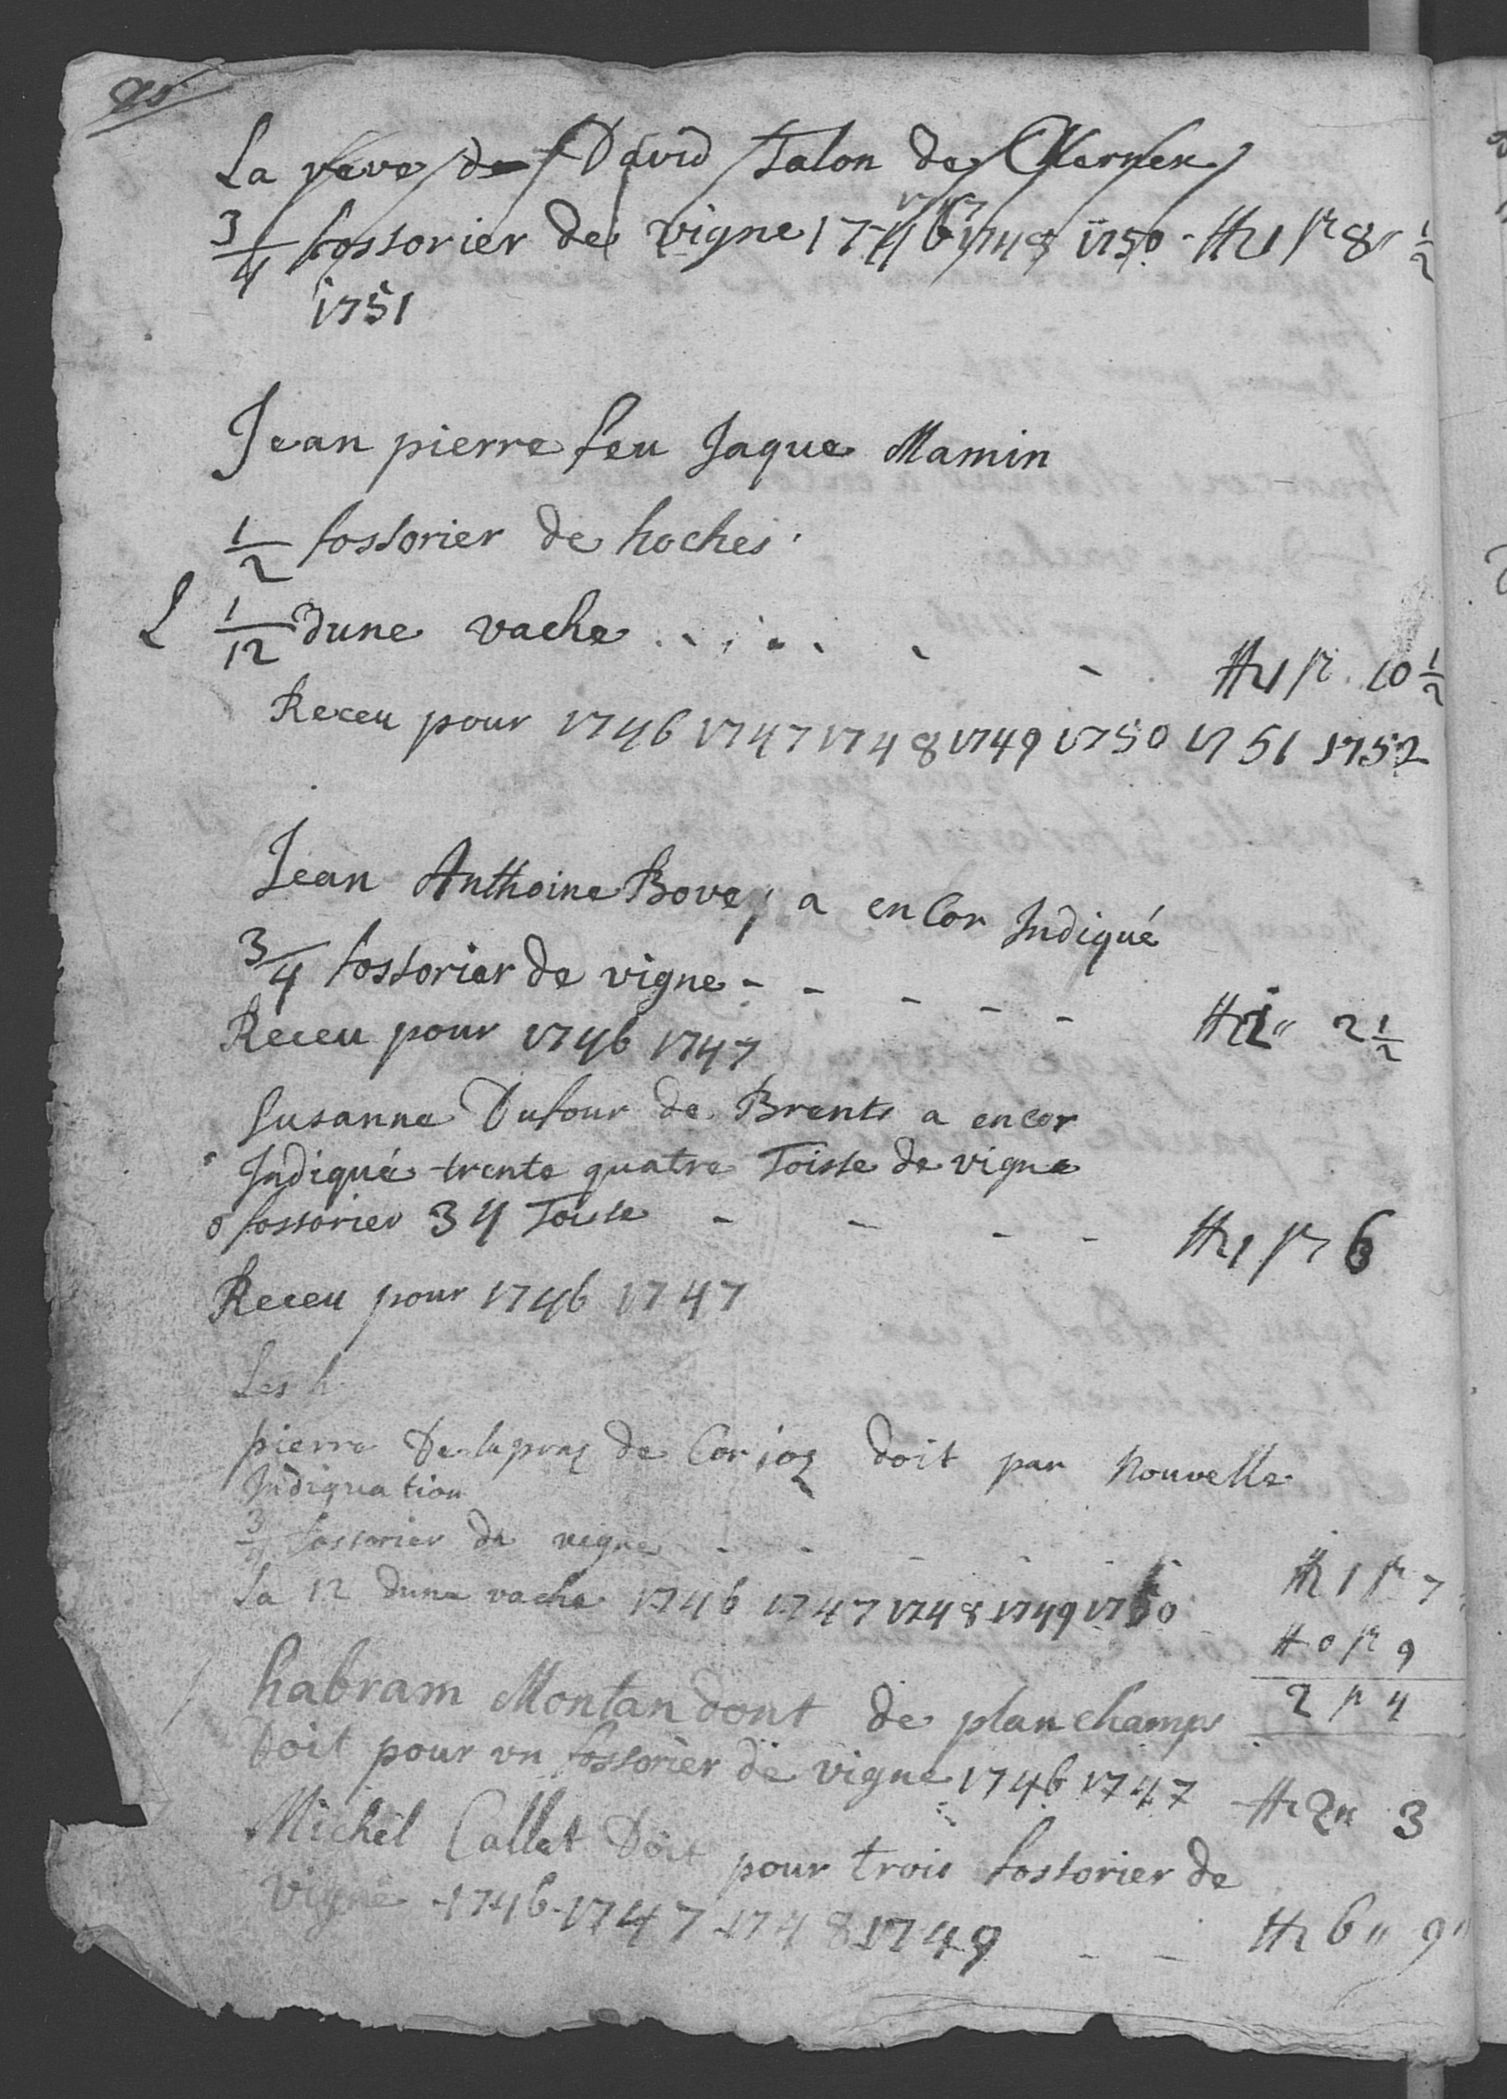 La veve de David Talon de Chernex
3/4 fossorier de vigne 1746 1747 1748 1750 - ff 1 p 8 1/2
1751
Jean pierre feu Jaque Mamin
1/2 fossorier de hoches
1/12 dune vache - - - - ff 1 p 10 1/2
Receu pour 1746 1747 1748 1749 1750 1751 1752
Jean Anthoine Bovey a encor Indiqué
3/4 fossorier de vigne - - - - - ff 1 " 2 1/2
Receu pour 1746 1747
Susanne Dufour de Brents a encor
Indiqué trente quatre Toisse de vigne
0 fossorier 34 Toise - - - - ff 1 p 6
Receu pour 1746 1747
Les h
pierre Delapraz de Corjoz doit par Nouvelle
Indiquation
3/4 fossorier de vigne - - - - - ff 1 p 7
La 12 dune vache 1746 1747 1748 1749 1750 ff 0 p 9
2 p 4
habram Montandont de planchamps
Doit pour un fossorier de vigne 1746 1747 ff 2 " 3
Michel Callet Doit pour trois fossorier de
vigne - 1746 - 1747 1748 1749 - - ff 6 " 9 "